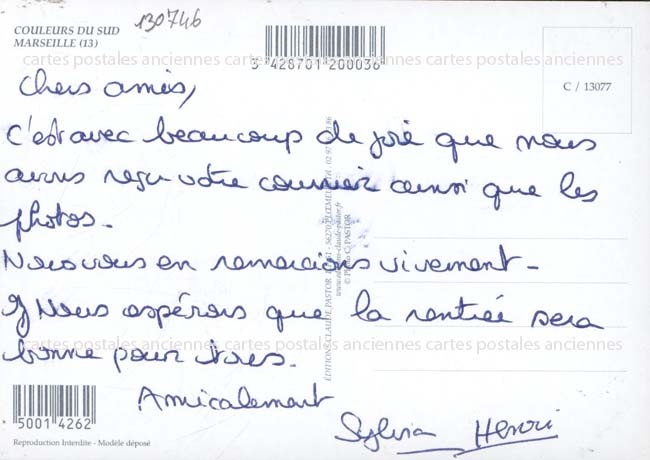 COULEURS DU SUD
MARSEILLE (13)
130746
3 428701 200036
C / 13077
cartes postales anciennes cartes postales anciennes cartes postales anciennes
Chers amis,
C'est avec beaucoup de joie que nous
avons reçu votre courrier ainsi que les
photos.
Nous vous en remercions vivement -
Nous espérons que la rentrée sera
bonne pour
cartes postales anciennes cartes postales anciennes cartes postales anciennes
Amicalement
Sylvia Henri
ÉDITIONS CLAUDE PASTOR 56270 PLOEMEUR
© Photo C. PASTOR
5001 4262
Reproduction Interdite - Modèle déposé